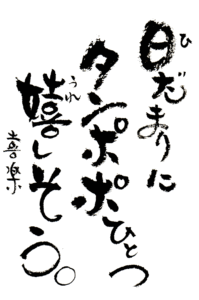 日だまりに
タンポポひとつ
嬉しそう。
喜楽